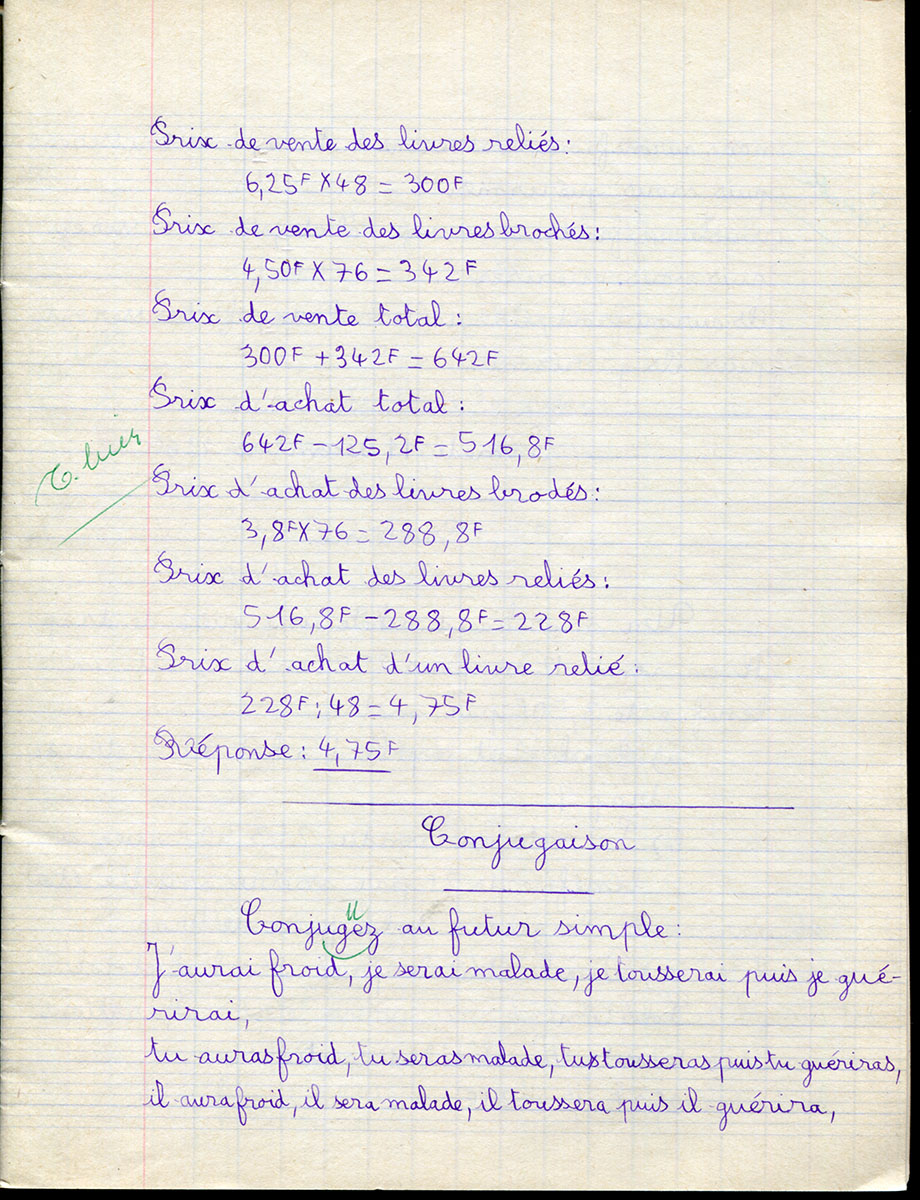 Prix de vente des livres reliés:
6,25F × 48 = 300F
Prix de vente des livres brochés:
4,50F × 76 = 342F
Prix de vente total:
300F + 342F = 642F
Prix d'achat total:
642F - 125,2F = 516,8F
T. bien
Prix d'achat des livres brodés:
3,8F × 76 = 288,8F
Prix d'achat des livres reliés:
516,8F - 288,8F = 228F
Prix d'achat d'un livre relié:
228F : 48 = 4,75F
Réponse: 4,75F
Conjugaison
u
Conjugéz au futur simple:
J'aurai froid, je serai malade, je tousserai puis je gué-
rirai,
tu auras froid, tu seras malade, tu tousseras puis tu guériras,
il aura froid, il sera malade, il toussera puis il guérira,